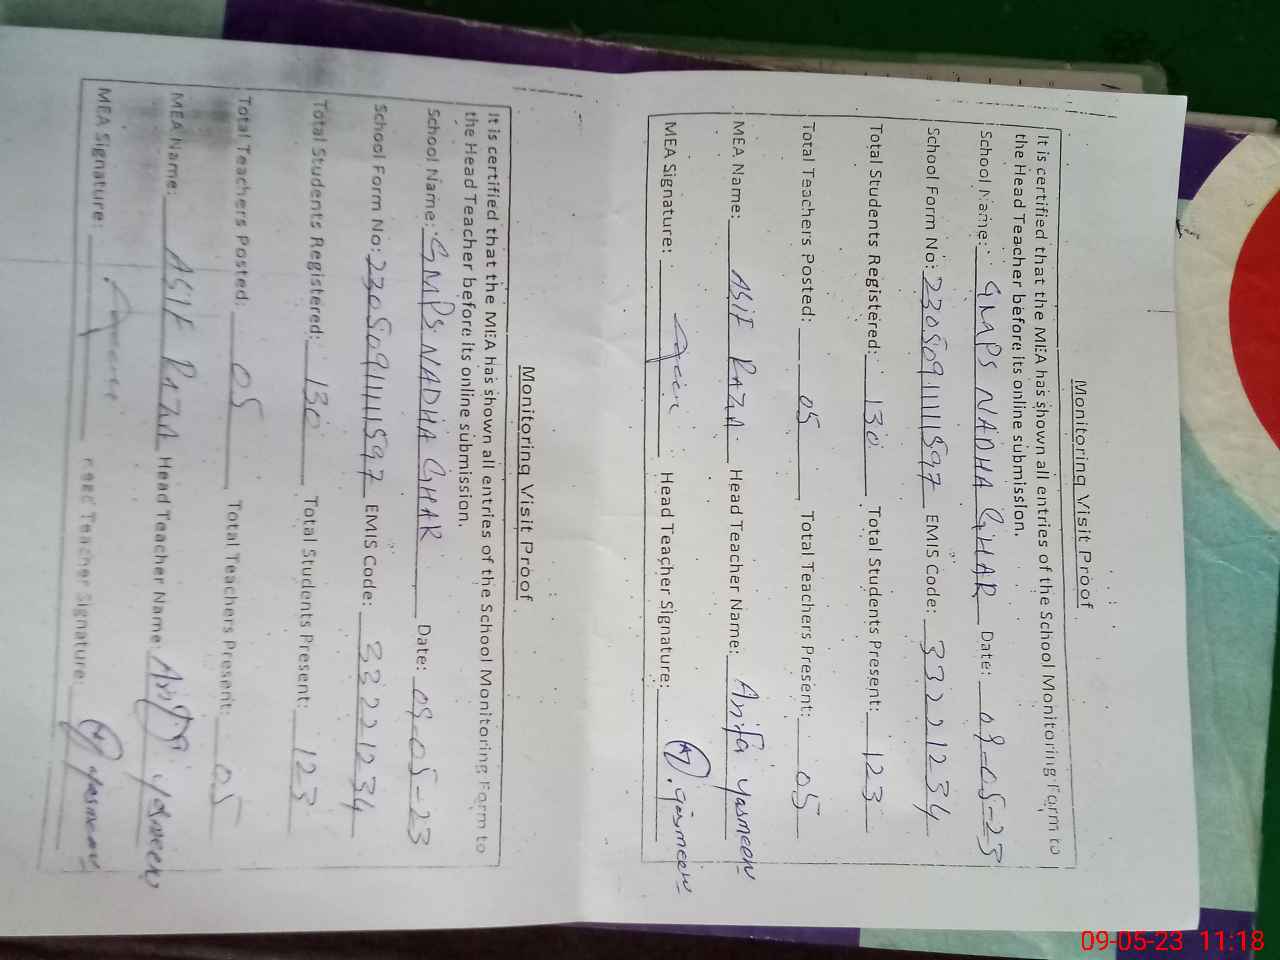 Monitoring Visit Proof
It is certified that the MEA has shown all entries of the School Monitoring Form to
the Head Teacher before its online submission.
School Name: GMPS NADHA GHAR Date: 09-05-23
School Form No: 230509111111597 EMIS Code: 33221234
Total Students Registered: 130 Total Students Present: 123
Total Teachers Posted: 05 Total Teachers Present: 05
MEA Name: ASIF RAZA Head Teacher Name: Arifa yasmeen
MEA Signature: Head Teacher Signature: yasmeen
Monitoring Visit Proof
It is certified that the MEA has shown all entries of the School Monitoring Form to
the Head Teacher before its online submission.
School Name: GMPS NADHA GHAR Date: 09-05-23
School Form No: 230509111111597 EMIS Code: 33221234
Total Students Registered: 130 Total Students Present: 123
Total Teachers Posted: 05 Total Teachers Present: 05
MEA Name: ASIF RAZA Head Teacher Name: yasmeen
MEA Signature: Head Teacher Signature: yasmeen
09-05-23 11:18